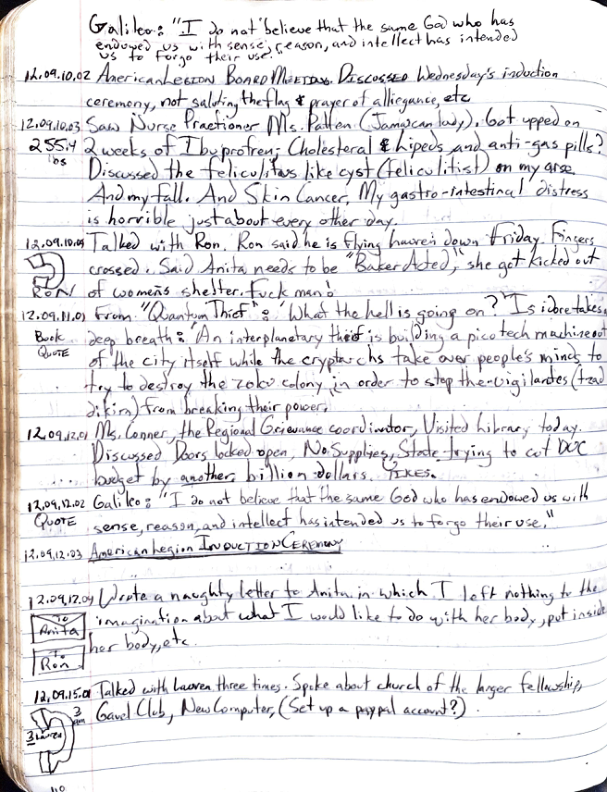 Galileo: "I do not believe that the same God who has
endowed us with sense, reason, and intellect has intended
us to forgo their use."
12.09.10.02 American Legion Board Meeting. Discussed Wednesday's induction
ceremony, not saluting the flag & prayer of alliegance, etc
12.09.10.03 Saw Nurse Practioner Ms. Patten (Jamaican lady). Got upped on
255.4 lbs 2 weeks of Ibuprofren; Cholesteral & Lipeds and anti-gas pills?
Discussed the like cyst on my arse
And my fall. And Skin Cancer, My gastro-intestinal distress
is horrible just about every other day.
12.09.10.04 Talked with Ron. Ron said he is flying down Friday. Fingers
RON crossed. Said Anita needs to be "Baker Acted", she got kicked out
of womens shelter. Fuck man!
12.09.11.01 From "Quantum Thief": "What the hell is going on?" Isidore takes a
Book Quote deep breath: "An interplanetary thief is building a picotech machine out
of the city itself while the cryptarchs take over people's minds to
try to destroy the zoku colony in order to stop the vigilantes (tzad
dikim) from breaking their power.
12.09.12.01 Ms. Conner, the Regional Grievance coordinator, Visited Library today.
Discussed Doors locked open, No Supplyes, State trying to cut DOC
budget by another billion dollars. YIKES.
12.09.12.02 Galileo: "I do not believe that the same God who has endowed us with
QUOTE sense, reason, and intellect has intended us to forgo their use."
12.09.12.03 American Legion INDUCTION CEREMONY
12.09.12.04 Wrote a naughty letter to Anita in which I left nothing to the
To Anita imagination about what I would like to do with her body, put inside
her body, etc.
To Ron
12.09.15.01 Talked with Lauren three times. Spoke about church of the larger fellowship,
3 Gavel Club, New Computer, (Set up a paypal account?)